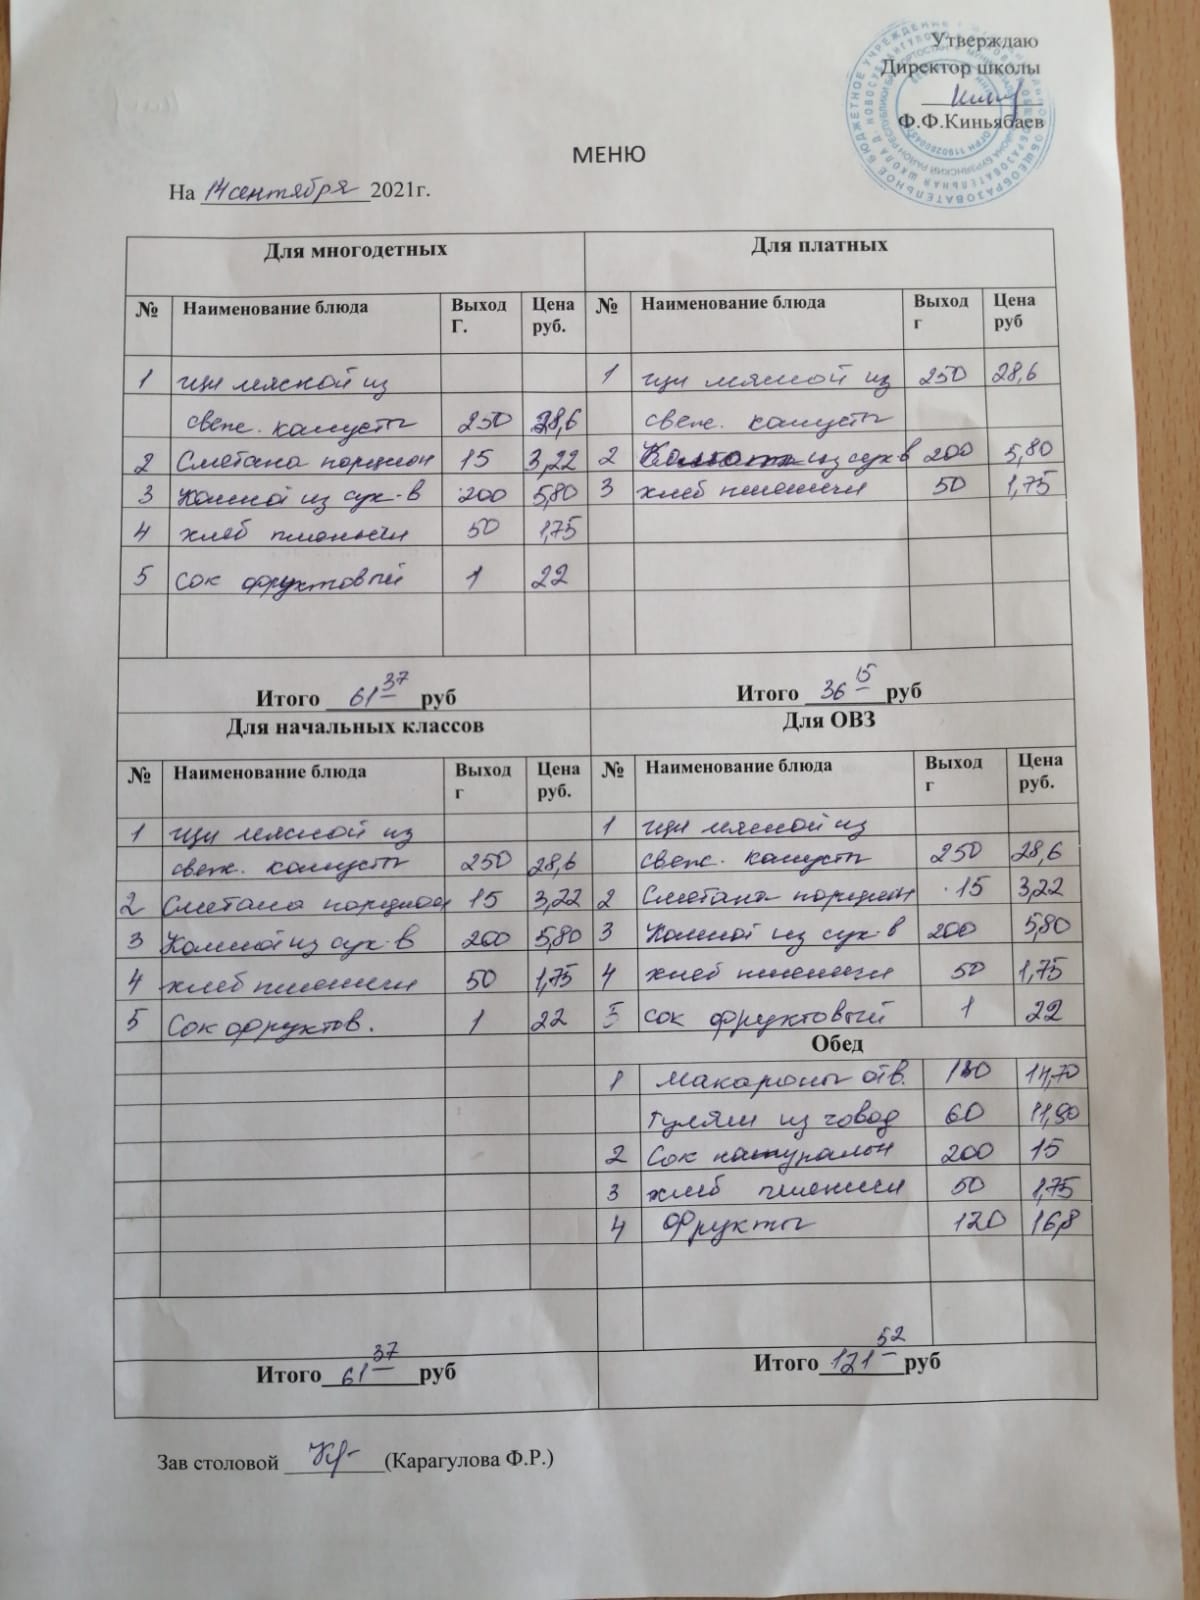 Утверждаю
Директор школы
Ф.Ф.Киньябаев
МЕНЮ
На 14 сентября 2021г.
Для многодетных
№ Наименование блюда Выход Г. Цена руб.
1 щи мясной из
свеж. капусты 250 28,6
2 Сметана порцион 15 3,22
3 Компот из сух-в 200 5,80
4 хлеб пшеничн 50 1,75
5 Сок фруктовый 1 22
Итого 61 37 руб
Для платных
№ Наименование блюда Выход г Цена руб
1 щи мясной из 250 28,6
свеж. капусты
2 Компот из сух-в 200 5,80
3 хлеб пшеничн 50 1,75
Итого 36 15 руб
Для начальных классов
№ Наименование блюда Выход г Цена руб.
1 щи мясной из
свеж. капусты 250 28,6
2 Сметана порцион 15 3,22
3 Компот из сух-в 200 5,80
4 хлеб пшеничн 50 1,75
5 Сок фруктов. 1 22
Итого 61 37 руб
Для ОВЗ
№ Наименование блюда Выход г Цена руб.
1 щи мясной из
свеж. капусты 250 28,6
2 Сметана порцион 15 3,22
3 Компот из сух-в 200 5,80
4 хлеб пшеничн 50 1,75
5 сок фруктовый 1 22
Обед
1 Макароны отв. 14,70
Гуляш из говяд 60 11,90
2 Сок натуральн 200 15
3 хлеб пшеничн 50 1,75
4 Фрукты 120 16,8
Итого 121 52 руб
Зав столовой (Карагулова Ф.Р.)